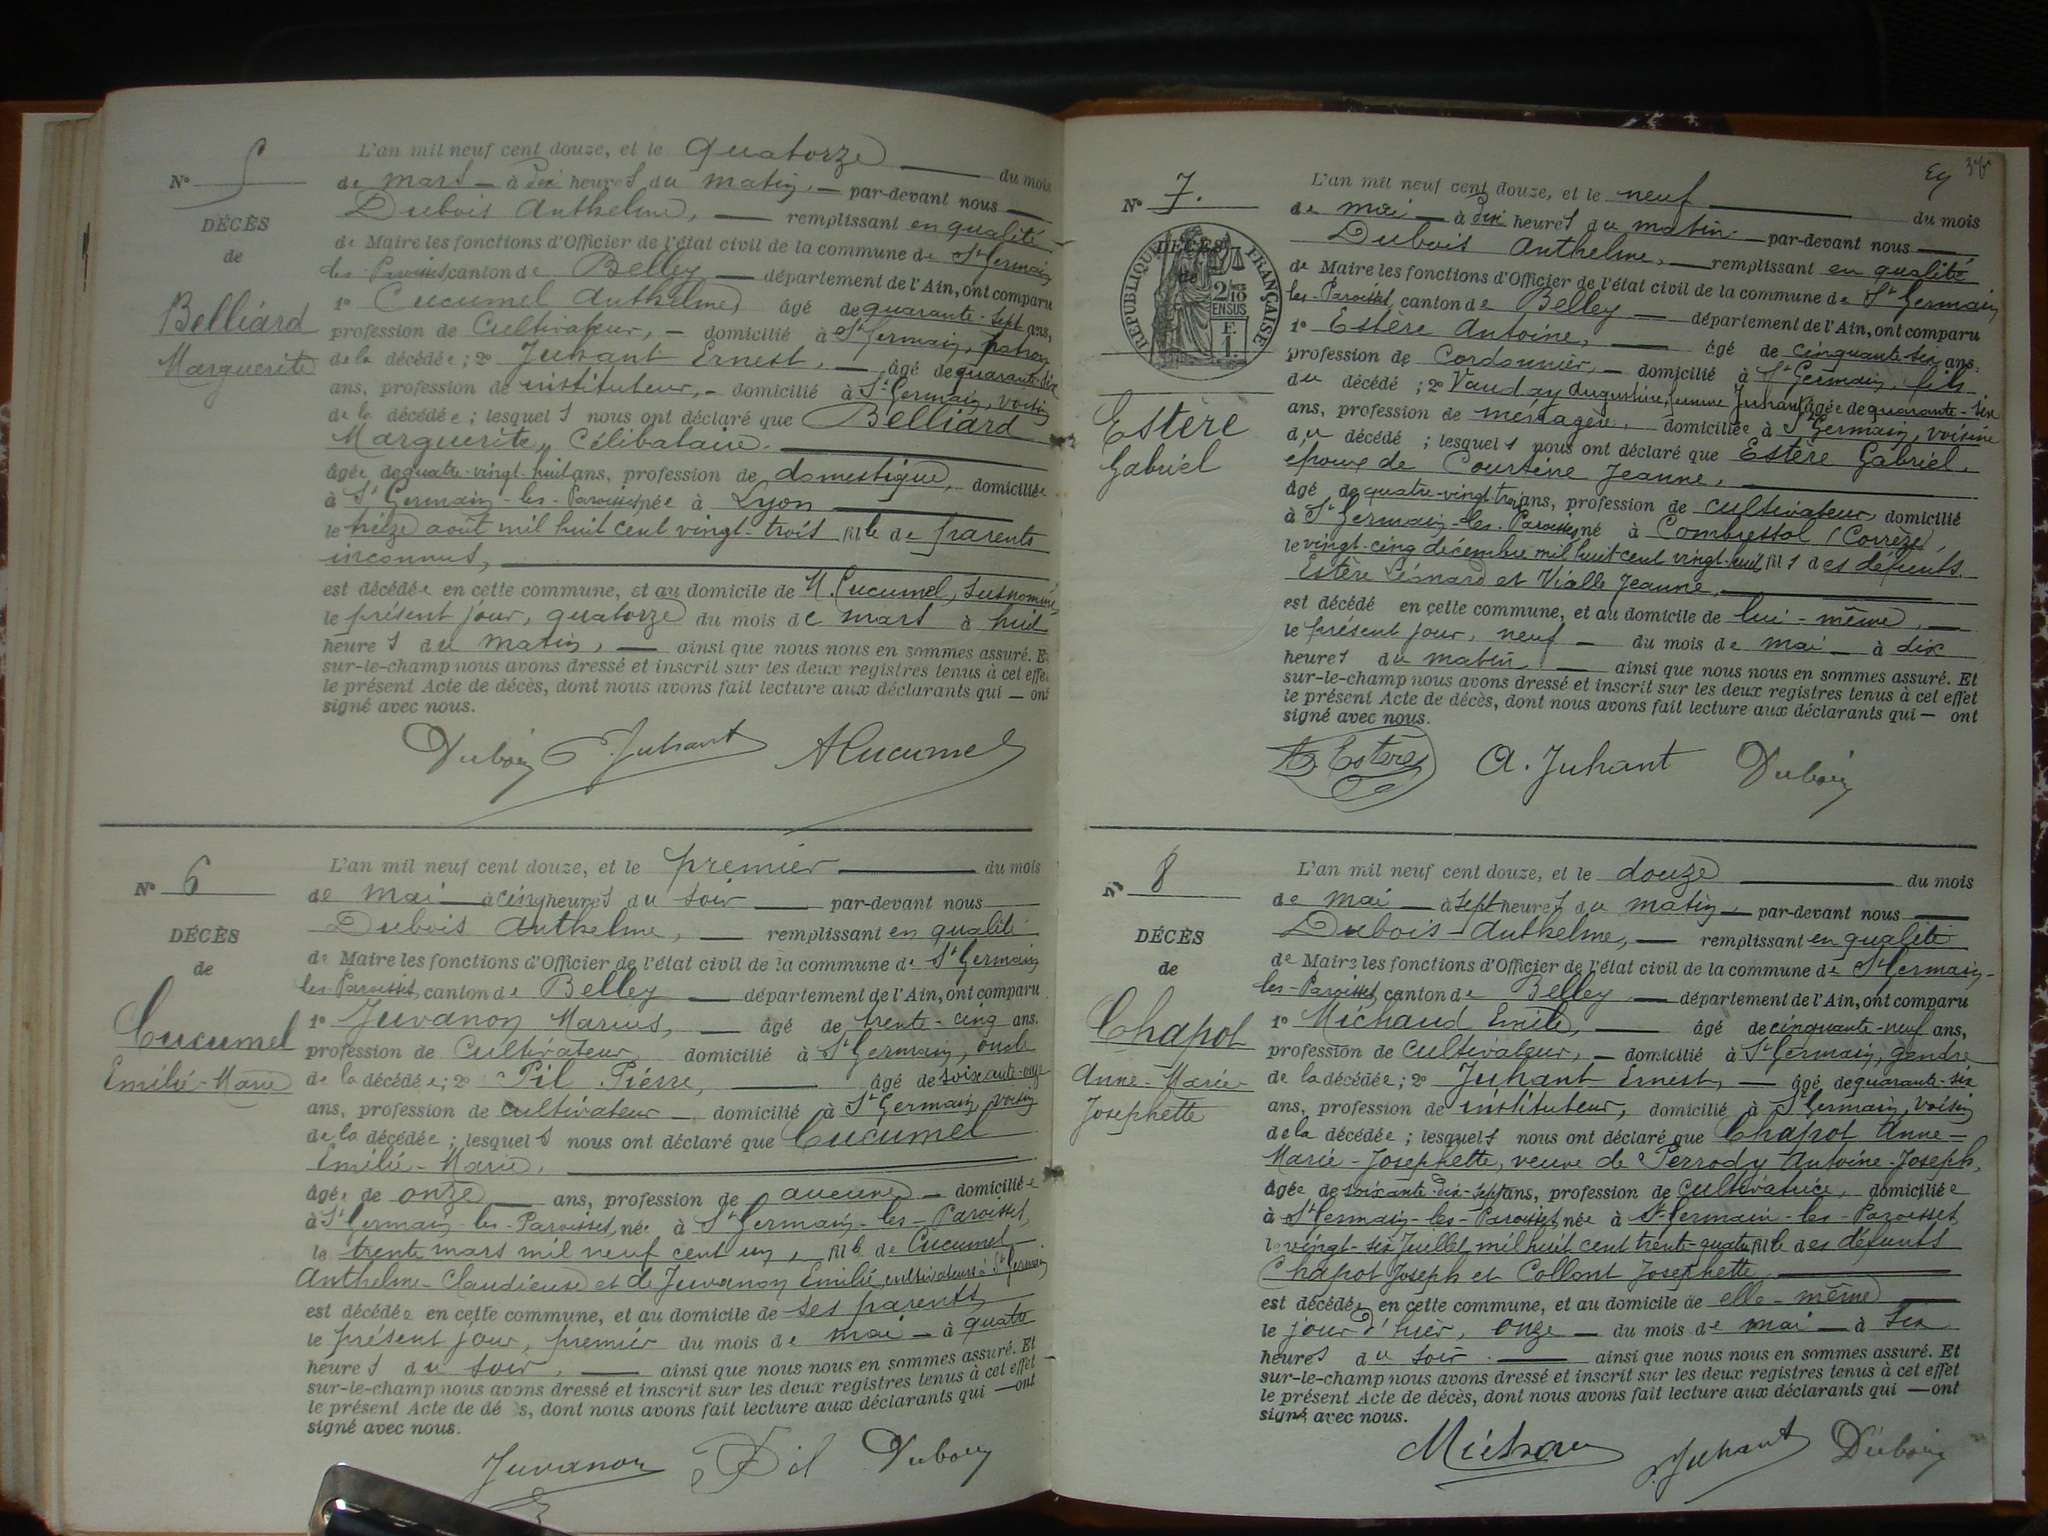 N° 5
DÉCÈS
de
Belliard
Marguerite
L'an mil neuf cent douze, et le Quatorze du mois
de mars à dix heures du matin, par-devant nous
Dubois Anthelme, remplissant en qualité
de Maire les fonctions d'Officier de l'état civil de la commune de St Germain
les-Paroisses canton de Belley département de l'Ain, ont comparu
1° Cucumel Anthelme âgé de quarante-sept ans,
profession de Cultivateur, domicilié à St Germain, patron
de la décédée; 2° Juhant Ernest, âgé de quarante-six
ans, profession de instituteur, domicilié à St Germain, voisin
de la décédée; lesquels nous ont déclaré que Belliard
Marguerite, Célibataire.
âgée de quatre-vingt-huit ans, profession de domestique, domiciliée
à St Germain-les-Paroisses née à Lyon
le treize août mil huit cent vingt-trois fille de parents
inconnus,
est décédée en cette commune, et au domicile de M. Cucumel, susnommé
le présent jour, quatorze du mois de mars à huit
heures du matin, ainsi que nous nous en sommes assuré. Et
sur-le-champ nous avons dressé et inscrit sur les deux registres tenus à cet effet
le présent Acte de décès, dont nous avons fait lecture aux déclarants qui — ont
signé avec nous.
Dubois E. Juhant A Cucumel
N° 6
DÉCÈS
de
Cucumel
Emilie-Marie
L'an mil neuf cent douze, et le premier du mois
de mai à cinq heures du soir par-devant nous
Dubois Anthelme, remplissant en qualité
de Maire les fonctions d'Officier de l'état civil de la commune de St Germain
les-Paroisses canton de Belley département de l'Ain, ont comparu
1° Juvanon Marius, âgé de trente-cinq ans.
profession de Cultivateur domicilié à St Germain, oncle
de la décédée; 2° Pil Pierre, âgé de soixante-onze
ans, profession de cultivateur domicilié à St Germain, voisin
de la décédée; lesquels nous ont déclaré que Cucumel
Emilie-Marie,
âgée de onze ans, profession de aucune domiciliée
à St Germain-les-Paroisses, née à St Germain-les-Paroisses,
le trente mars mil neuf cent un, fille de Cucumel
Anthelme-Claudieuse et de Juvanon Emilie, cultivateurs à St Germain
est décédée en cette commune, et au domicile de ses parents
le présent jour, premier du mois de mai à quatre
heures du soir, ainsi que nous nous en sommes assuré. Et
sur-le-champ nous avons dressé et inscrit sur les deux registres tenus à cet effet
le présent Acte de dé s, dont nous avons fait lecture aux déclarants qui — ont
signé avec nous.
Juvanon Pil Dubois
N° 7.
DÉCÈS
de
RÉPUBLIQUE FRANÇAISE
2/10
EN SUS
F.
1.
Estère
Gabriel
L'an mil neuf cent douze, et le neuf du mois
de mai à dix heures du matin par-devant nous
Dubois Anthelme, remplissant en qualité
de Maire les fonctions d'Officier de l'état civil de la commune de St Germain
les-Paroisses, canton de Belley département de l'Ain, ont comparu
1° Estère Antoine, âgé de cinquante-six ans,
profession de Cordonnier, domicilié à St Germain, fils
du décédé; 2° Vauday Augustine, femme Juhant âgée de quarante-six
ans, profession de messagère, domiciliée à St Germain, voisine
du décédé; lesquels nous ont déclaré que Estère Gabriel,
époux de Courteix Jeanne,
âgé de quatre-vingt-trois ans, profession de cultivateur, domicilié
à St Germain-les-Paroisses né à Combressol (Corrèze),
le vingt-cinq décembre mil huit cent vingt-huit fils des défunts
Estère Léonard et Vialle Jeanne,
est décédé en cette commune, et au domicile de lui-même,
le présent jour, neuf du mois de mai à dix
heures du matin ainsi que nous nous en sommes assuré. Et
sur-le-champ nous avons dressé et inscrit sur les deux registres tenus à cet effet
le présent Acte de décès, dont nous avons fait lecture aux déclarants qui — ont
signé avec nous.
A. Estère A. Juhant Dubois
N° 8
DÉCÈS
de
Chapot
Anne-Marie-
Josephette
L'an mil neuf cent douze, et le douze du mois
de mai à sept heures du matin, par-devant nous
Dubois Anthelme, remplissant en qualité
de Maire les fonctions d'Officier de l'état civil de la commune de St Germain-
les-Paroisses, canton de Belley département de l'Ain, ont comparu
1° Michaud Emile, âgé de cinquante-neuf ans,
profession de Cultivateur, domicilié à St Germain, gendre
de la décédée; 2° Juhant Ernest, âgé de quarante-six
ans, profession de instituteur, domicilié à St Germain, voisin
de la décédée; lesquels nous ont déclaré que Chapot Anne-
Marie-Josephette, veuve de Perrody Antoine-Joseph,
âgée de soixante-dix-sept ans, profession de Cultivatrice, domiciliée
à St Germain-les-Paroisses, née à St Germain-les-Paroisses
le vingt-six Juillet mil huit cent trente-quatre fille des défunts
Chapot Joseph et Collont Josephette
est décédée en cette commune, et au domicile de elle-même
le jour d'hier, onze du mois de mai à six
heures du soir. ainsi que nous nous en sommes assuré. Et
sur-le-champ nous avons dressé et inscrit sur les deux registres tenus à cet effet
le présent Acte de décès, dont nous avons fait lecture aux déclarants qui — ont
signé avec nous.
Michaud E. Juhant Dubois